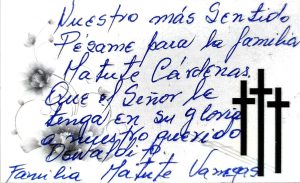 Nuestro más Sentido
Pésame para la familia
Matute Cárdenas.
Que el Señor le
tenga en su gloria
a nuestro querido
Oswaldito.
Familia Matute Vanegas